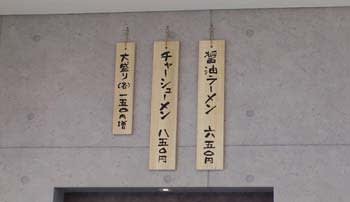 醤油ラーメン 六五〇円
チャーシューメン 八五〇円
大盛り(各)一五〇円増